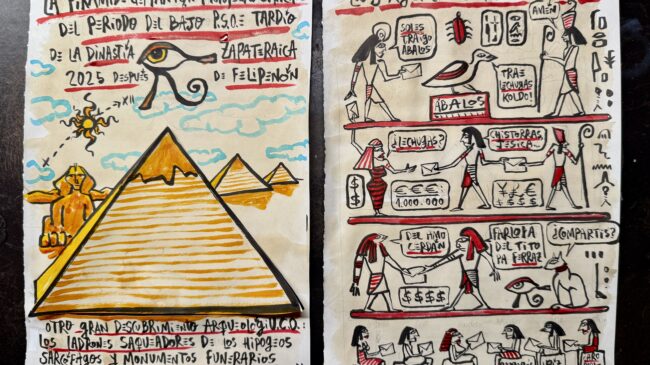 DEL PERIODO DEL BAJO P.S.O.E. TARDÍO
DE LA DINASTÍA ZAPATERAICA
2025 DESPUÉS DE FELIPENÓN
XII
OTRO GRAN DESCUBRIMIENTO ARQUEOLÓGI.U.C.O.:
LOS LADRONES SAQUEADORES DE LOS HIPOGEOS
SARCÓFAGOS Y MONUMENTOS FUNERARIOS
SOLES
TRAIGO
ÁBALOS
AMÉN!
TRAE
LECHUGAS
KOLDO!
ÁBALOS
¿LECHUGAS?
CHISTORRAS,
JESICA
$ $
€€€
1.000.000
¥€¥
$$$$
DEL MÍO
CERDÁN
FARLOPA
DEL TITO
PA FERRAZ
¿COMPARTÍS?
$$$$